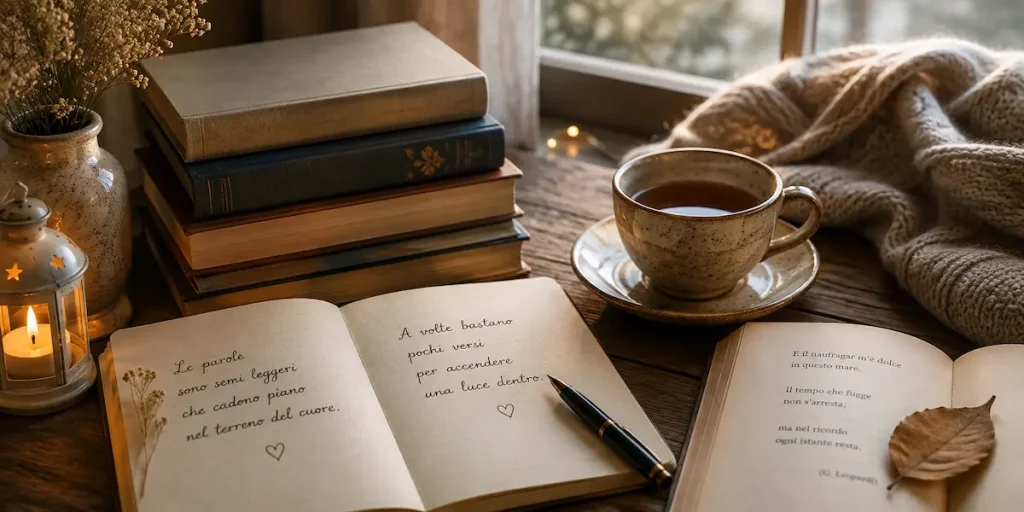 Le parole
sono semi leggeri
che cadono piano
nel terreno del cuore.
A volte bastano
pochi versi
per accendere
una luce dentro.
E il naufragar m'è dolce
in questo mare.
Il tempo che fugge
non s'arresta;
ma nel ricordo
ogni istante resta.
(G. Leopardi)